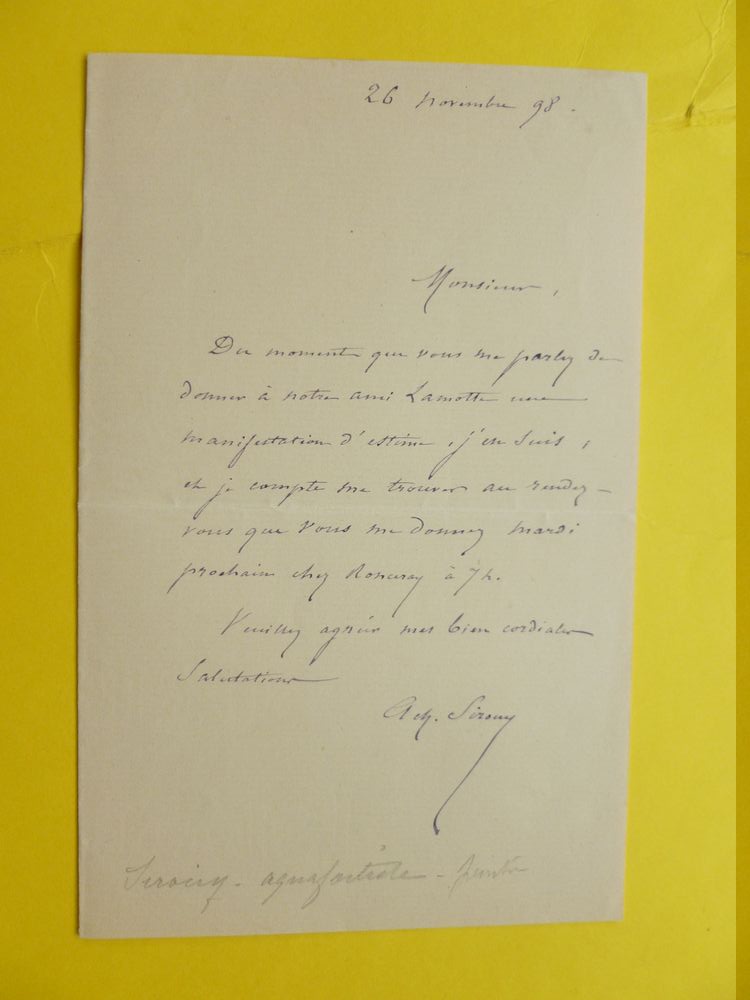 26 novembre 98.
Monsieur,
Du moment que vous me parlez de
donner à notre ami Lamotte une
manifestation d'estime, j'en suis,
et je compte me trouver au rendez-
vous que vous me donnez mardi
prochain chez Ronceray à 7 h.
Veuillez agréer mes bien cordiales
Salutations
Ach. Sirouy
Sirouy - aquafortiste - peintre